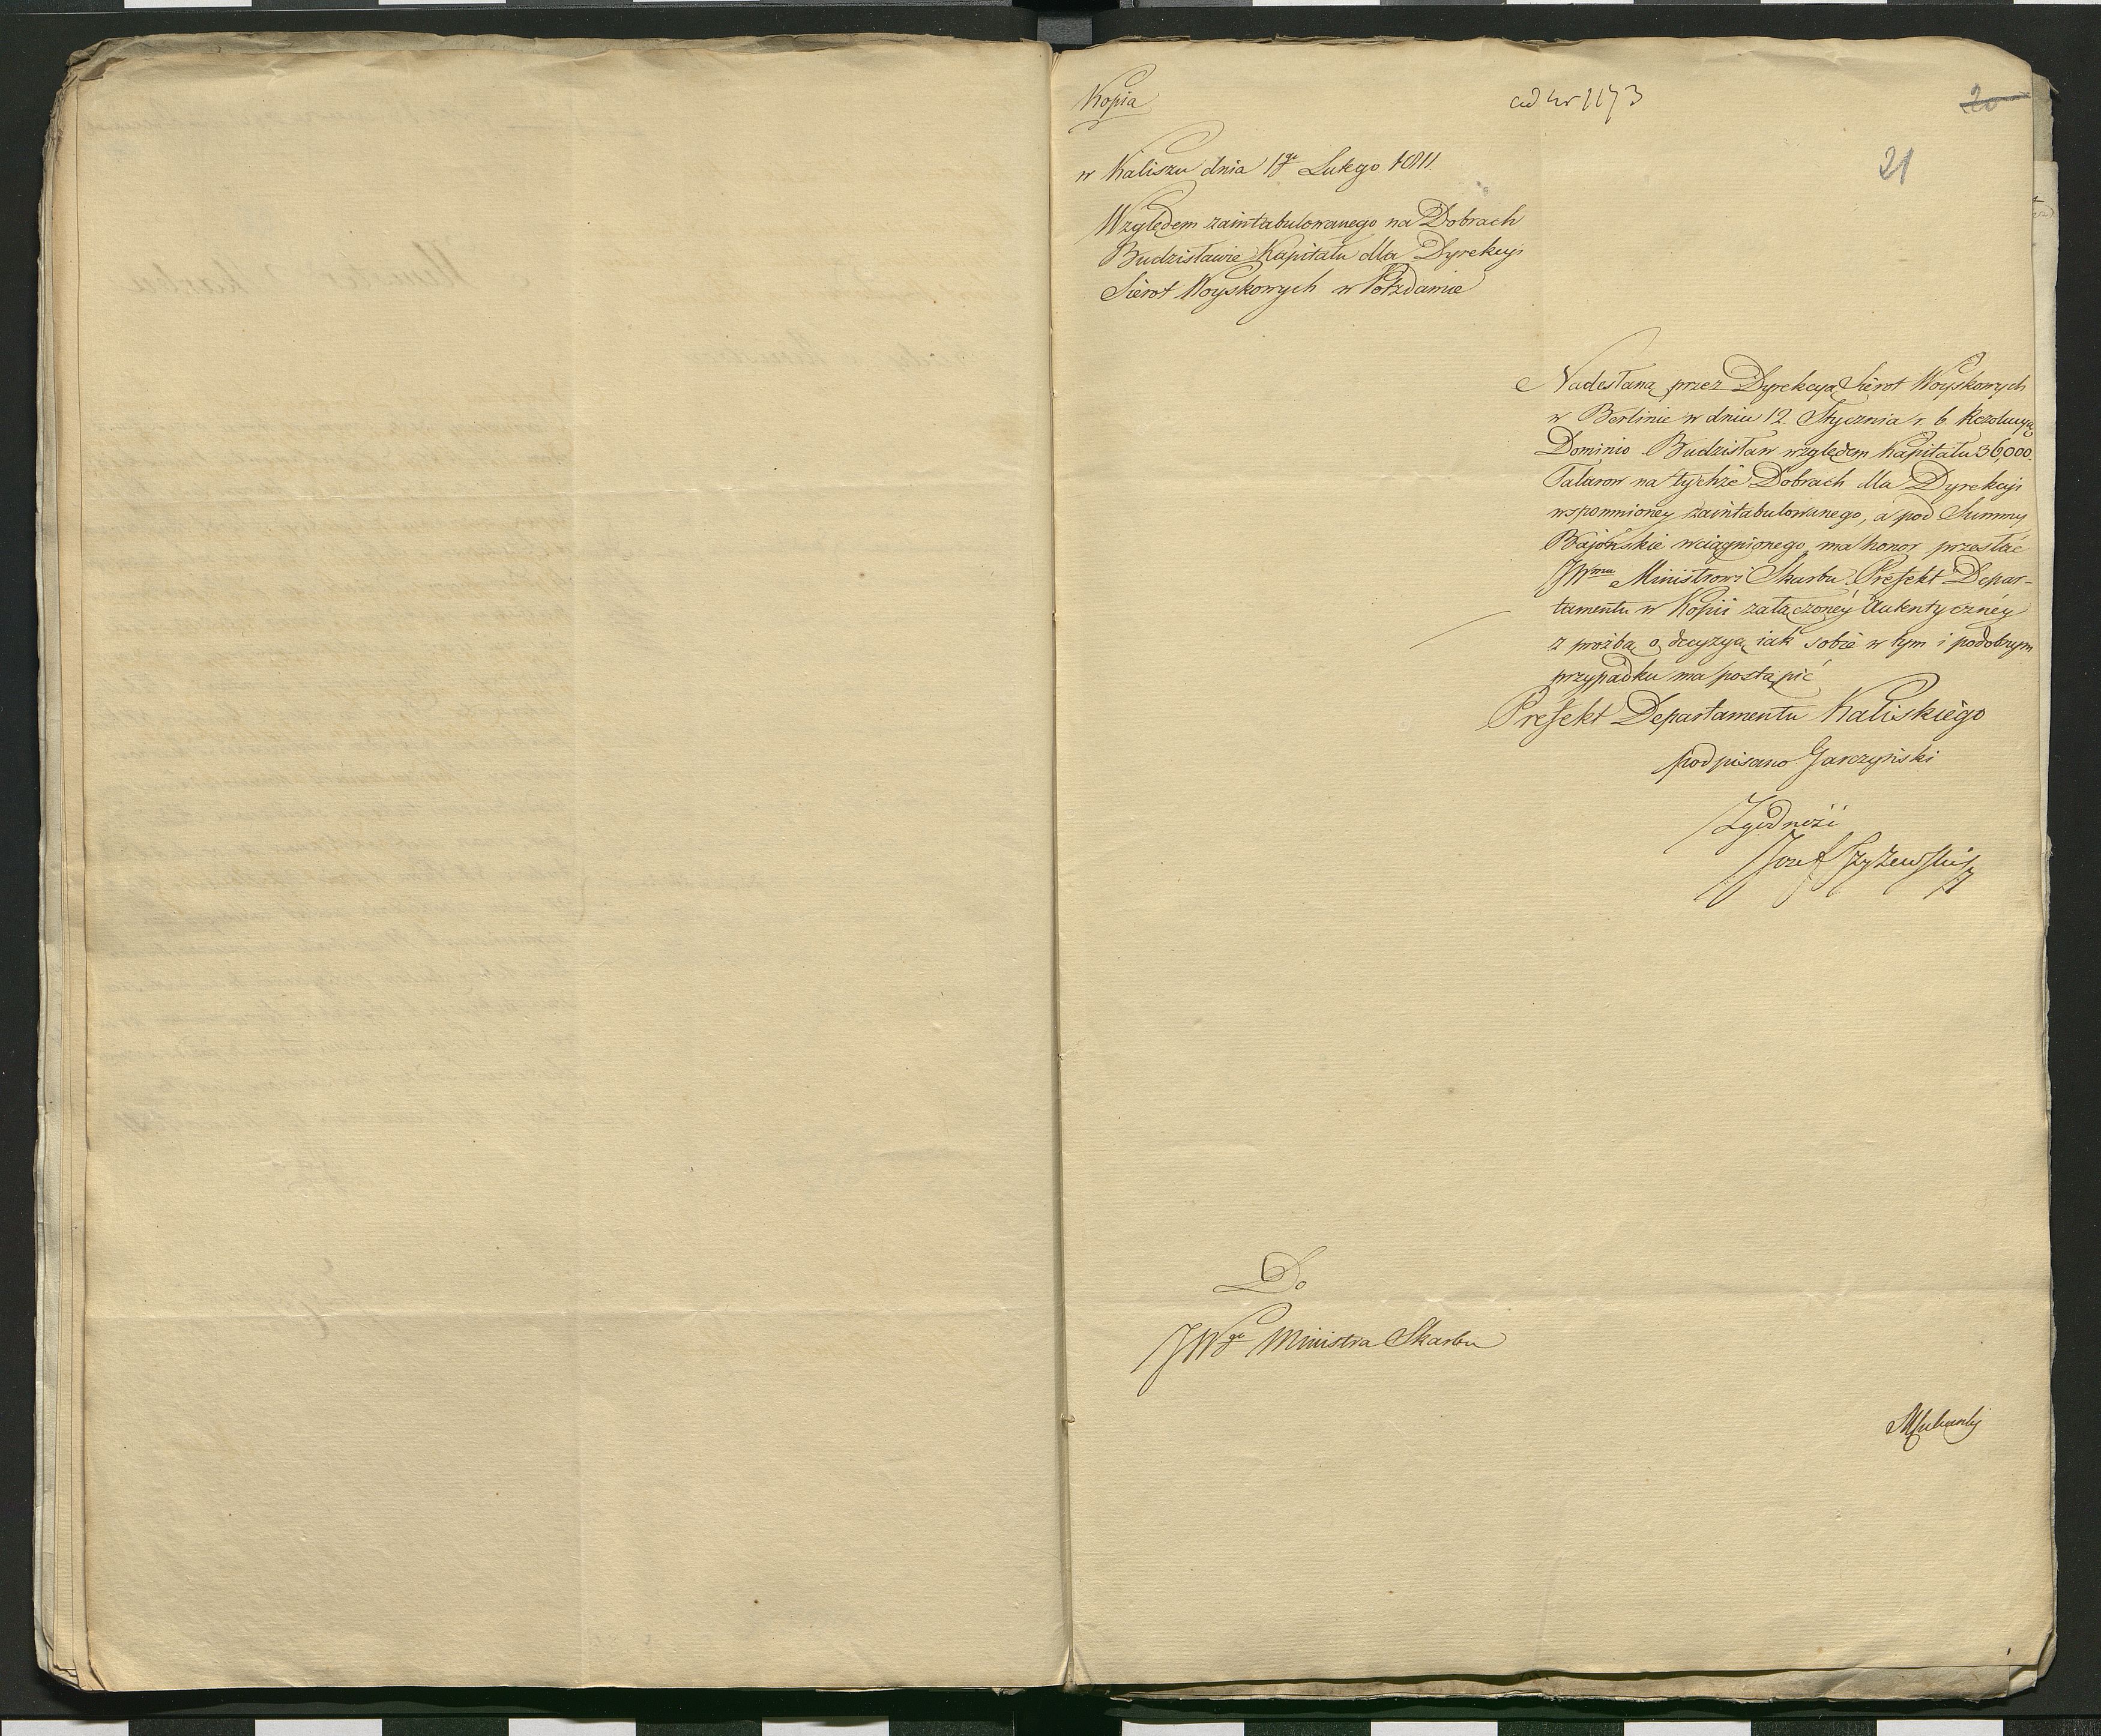 Kopia
ad Nr 1173
20
21
w Kaliszu dnia 1go Lutego 1811.
Względem zaintabulowanego na Dobrach
Budzisławie Kapitału dla Dyrekcyi
Sierot Woyskowych w Potzdamie
Nadesłaną przez Dyrekcyą Sierot Woyskowych
w Berlinie w dniu 12. Stycznia r. b. Rezolucyą
Dominio Budzisław względem Kapitału 36,000.
Talarow na tychże Dobrach dla Dyrekcyi
wspomnioney zaintabulowanego, a pod Summy
Bajońskie wciągnionego ma honor przesłać
JWmu Ministrowi Skarbu Prefekt Depar-
tamentu w Kopii załączoney Autentyczney
z prożbą o decyzyą iak sobie w tym i podobnym
przypadku ma postąpić
Prefekt Departamentu Kaliskiego
podpisano Garczyński
Zgodność
Jozef Szyżewski
Do
JWgo Ministra Skarbu